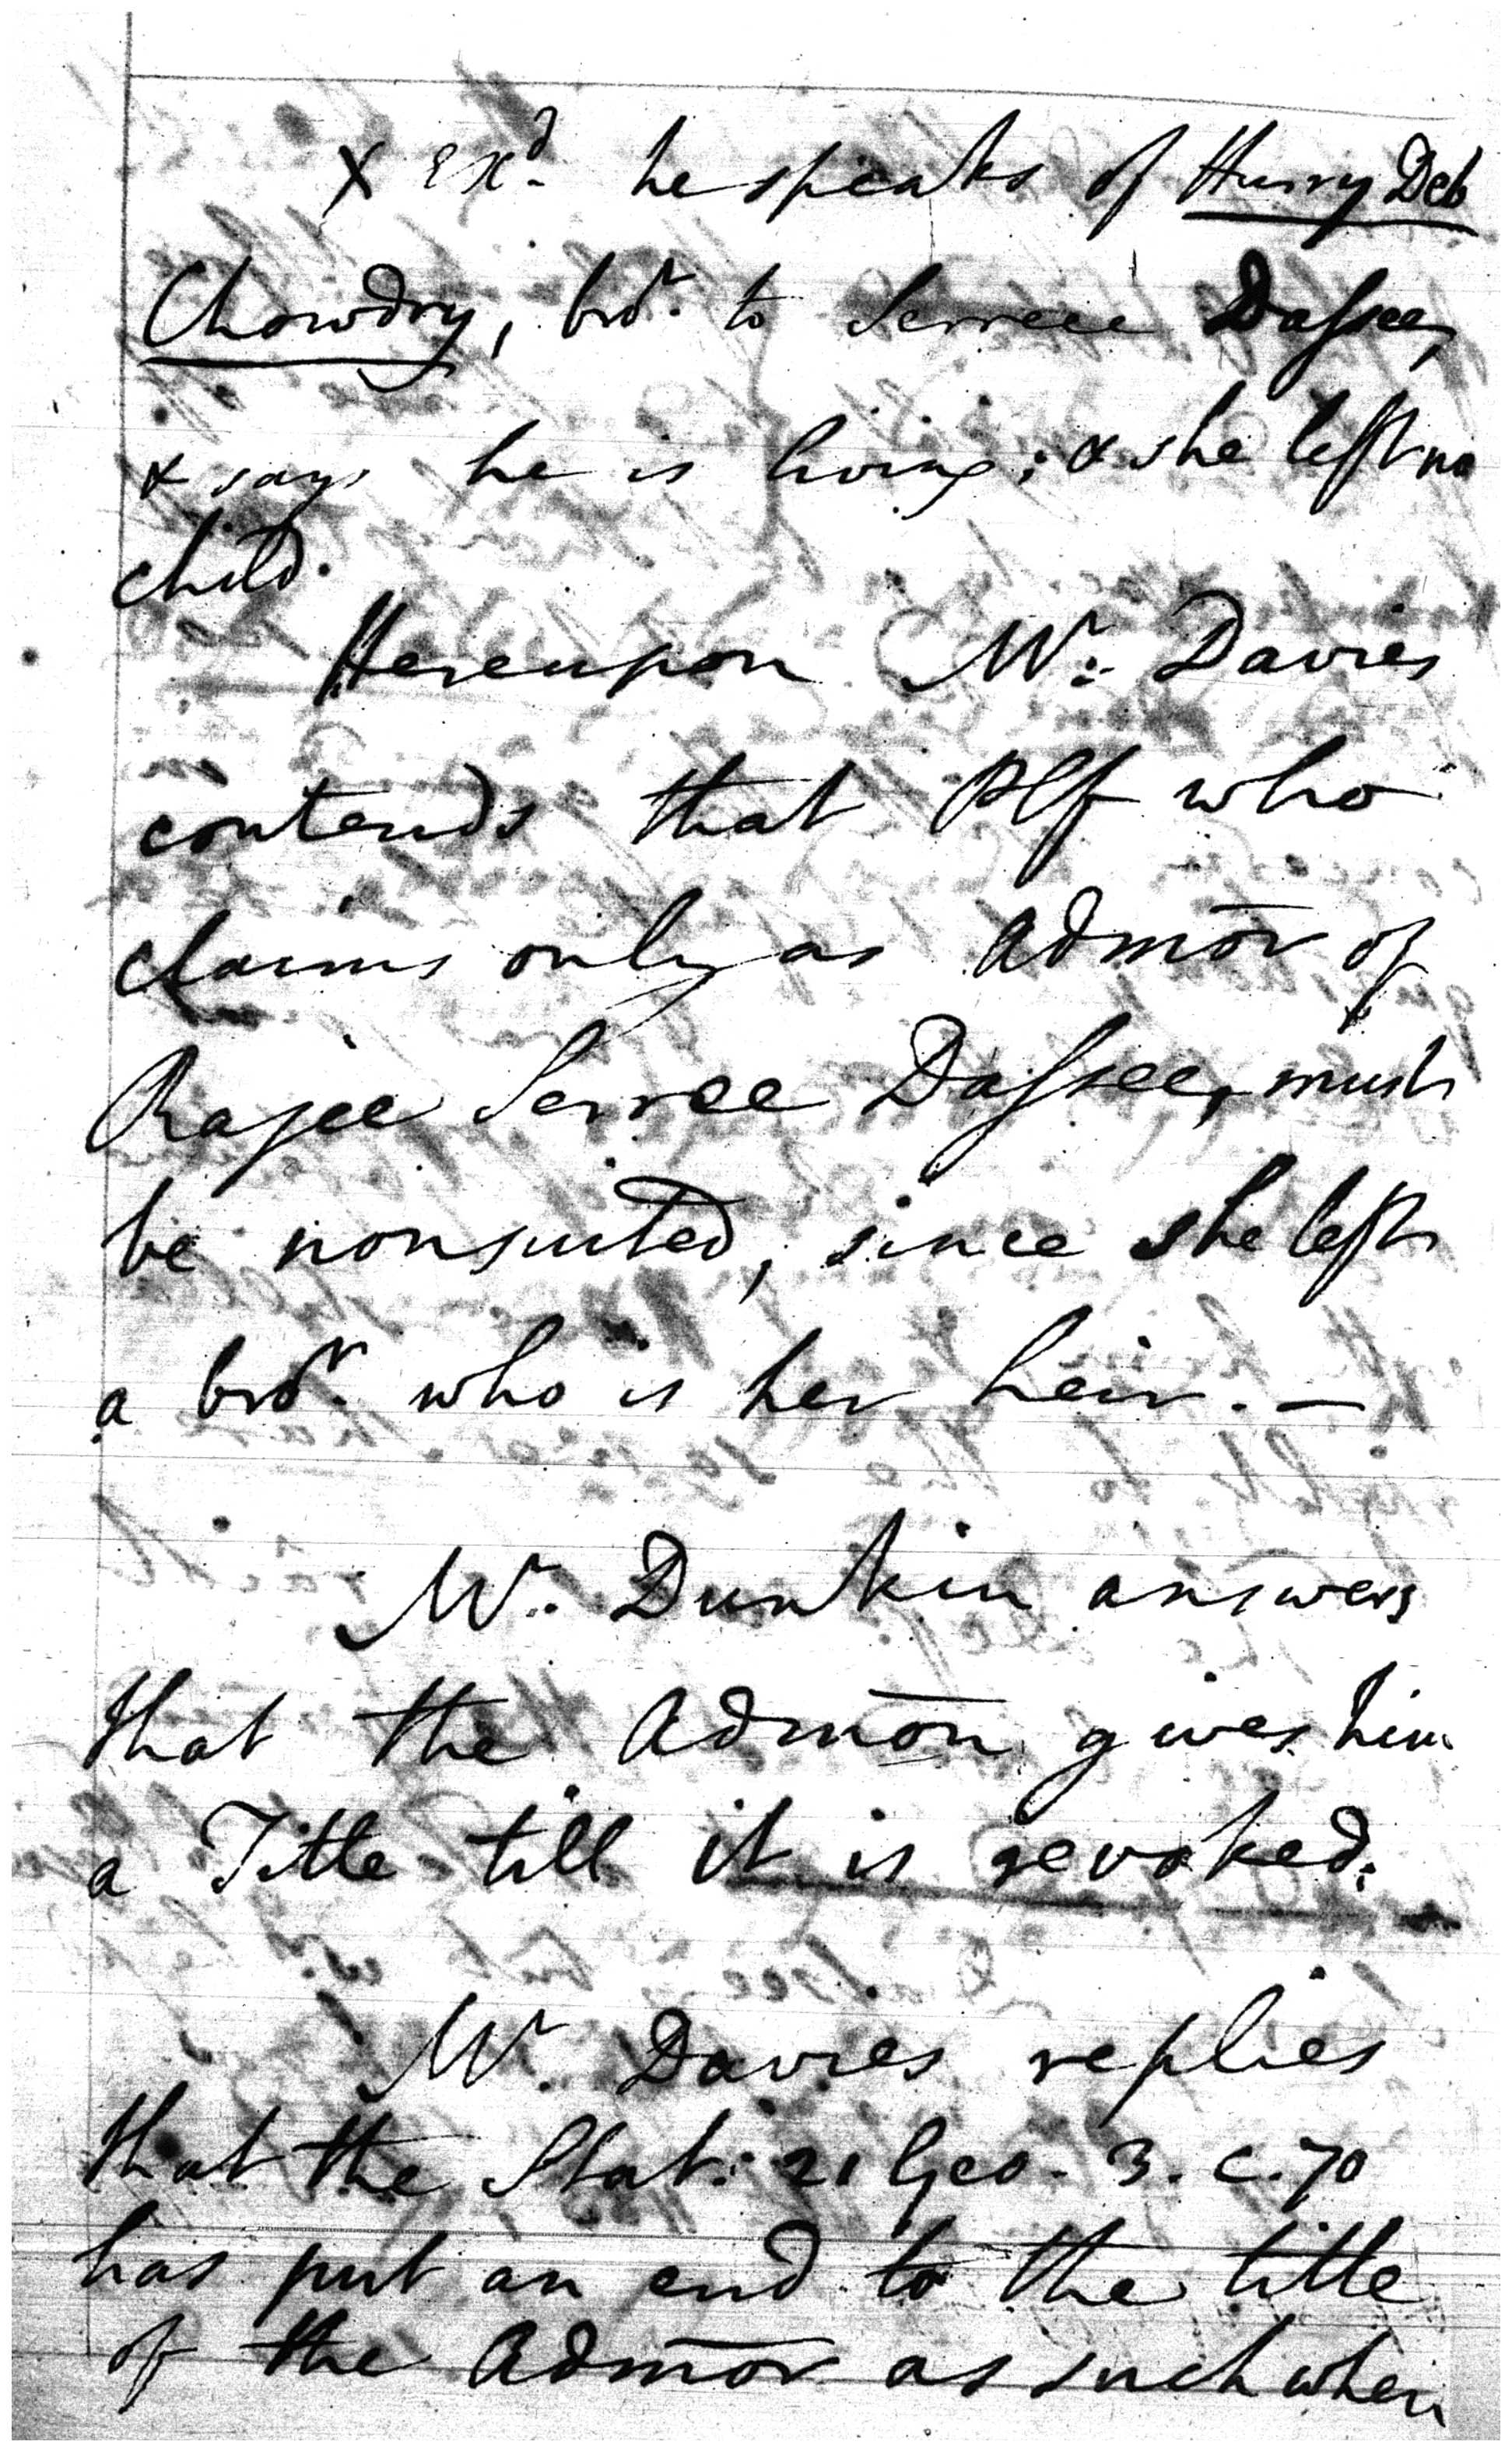 X Exd. he speaks of Hurry Deb
Chowdry, bror. to Serreee Dassee,
& says he is living; & she left no
child.
Hereupon Mr. Davies
contends that Plf who
claims only as Admōr of
Rajee Serree Dassee, must
be nonsuited, since she left
a bror. who is her heir. —
Mr. Dunkin answers
that the Admōn gives him
a Title till it is revoked.
Mr. Davies replies
that the Stat: 21 Geo. 3. c. 70
has put an end to the title
of the Admōr as such when